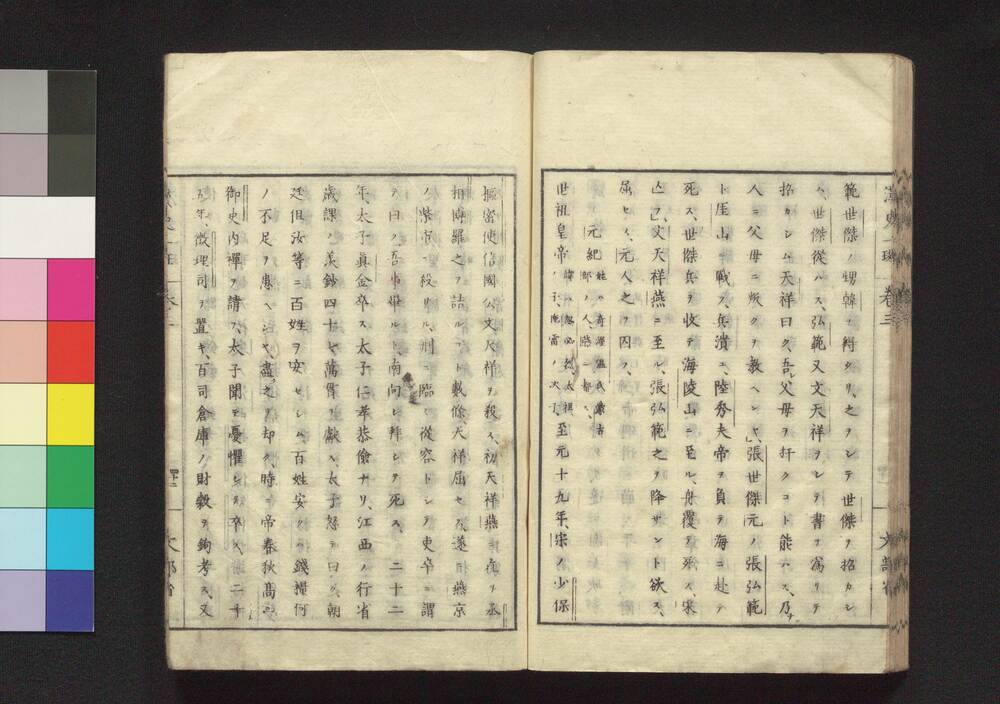 範世傑ノ甥韓ヲ得タリ、之ヲシテ世傑ヲ招カシ
ム、世傑従ハス、弘範又文天祥ヲシテ書ヲ寫リテ
招カシム、天祥曰ク、吾父母ヲ扞クコト能ハス、乃
人ニ父母ニ叛クヲ教ヘンヤ、張世傑元ノ張弘範
ト厓山ニ戰フ、兵潰ユ、陸秀夫帝ヲ負テ海ニ赴テ
死ス、世傑兵ヲ收テ海陵山ニ至ル、舟覆テ死ス、宋
亡フ、文天祥燕ニ至ル、張弘範之ヲ降サント欲ス、
屈セス、元人之ヲ囚フ、
元紀
世祖皇帝 至元十九年、宋ノ少保
樞密使信國公文天祥ヲ殺ス、初天祥燕ニ在リ、丞
相博羅之ヲ詰ルコト數條、天祥屈セス、遂ニ燕京
ノ柴市ニ殺サル、刑ニ臨ミ從容トシテ吏卒ニ謂
テ曰ク、吾事畢ルト、南向シ拜シテ死ス、二十二
年、太子真金卒ス、太子仁孝恭儉ナリ、江西ノ行省
歳課ノ羨鈔四十七萬貫ヲ獻ス、太子怒テ曰ク、朝
廷但汝等ニ百姓ヲ安セシム、百姓安クハ錢糧何
ノ不足ヲ患ヘンヤ、盡ク之ヲ却ク、時ニ帝春秋高シ、
御史内禪ヲ請フ、太子聞テ憂懼シテ卒ス、二十
五年、徴理司ヲ置キ、百司倉庫ノ財穀ヲ鉤考ス、又
卷三
文部省